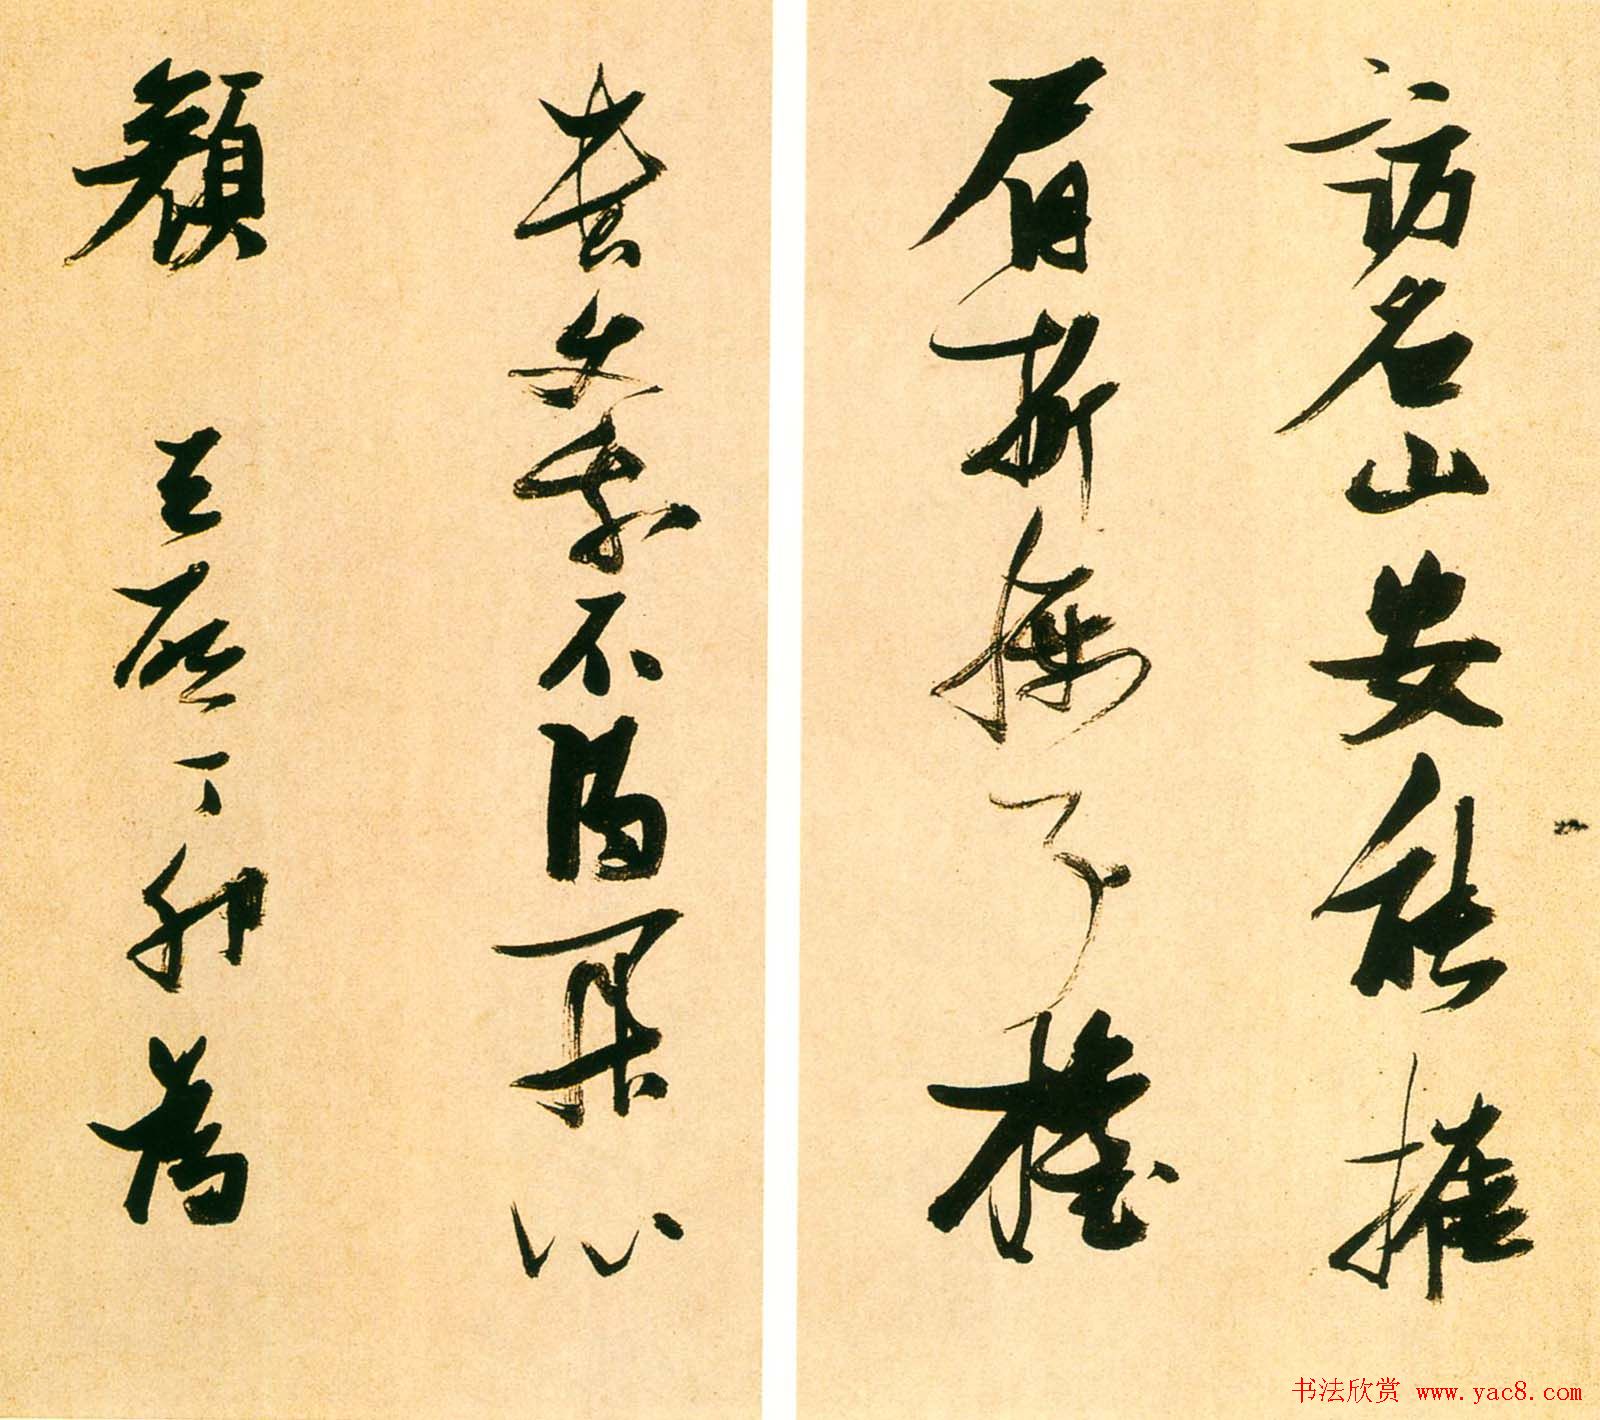 訪名山安能摧
眉折腰事權
貴使我不得開心
顏 天啟丁卯為
书法欣赏 www.yac8.com